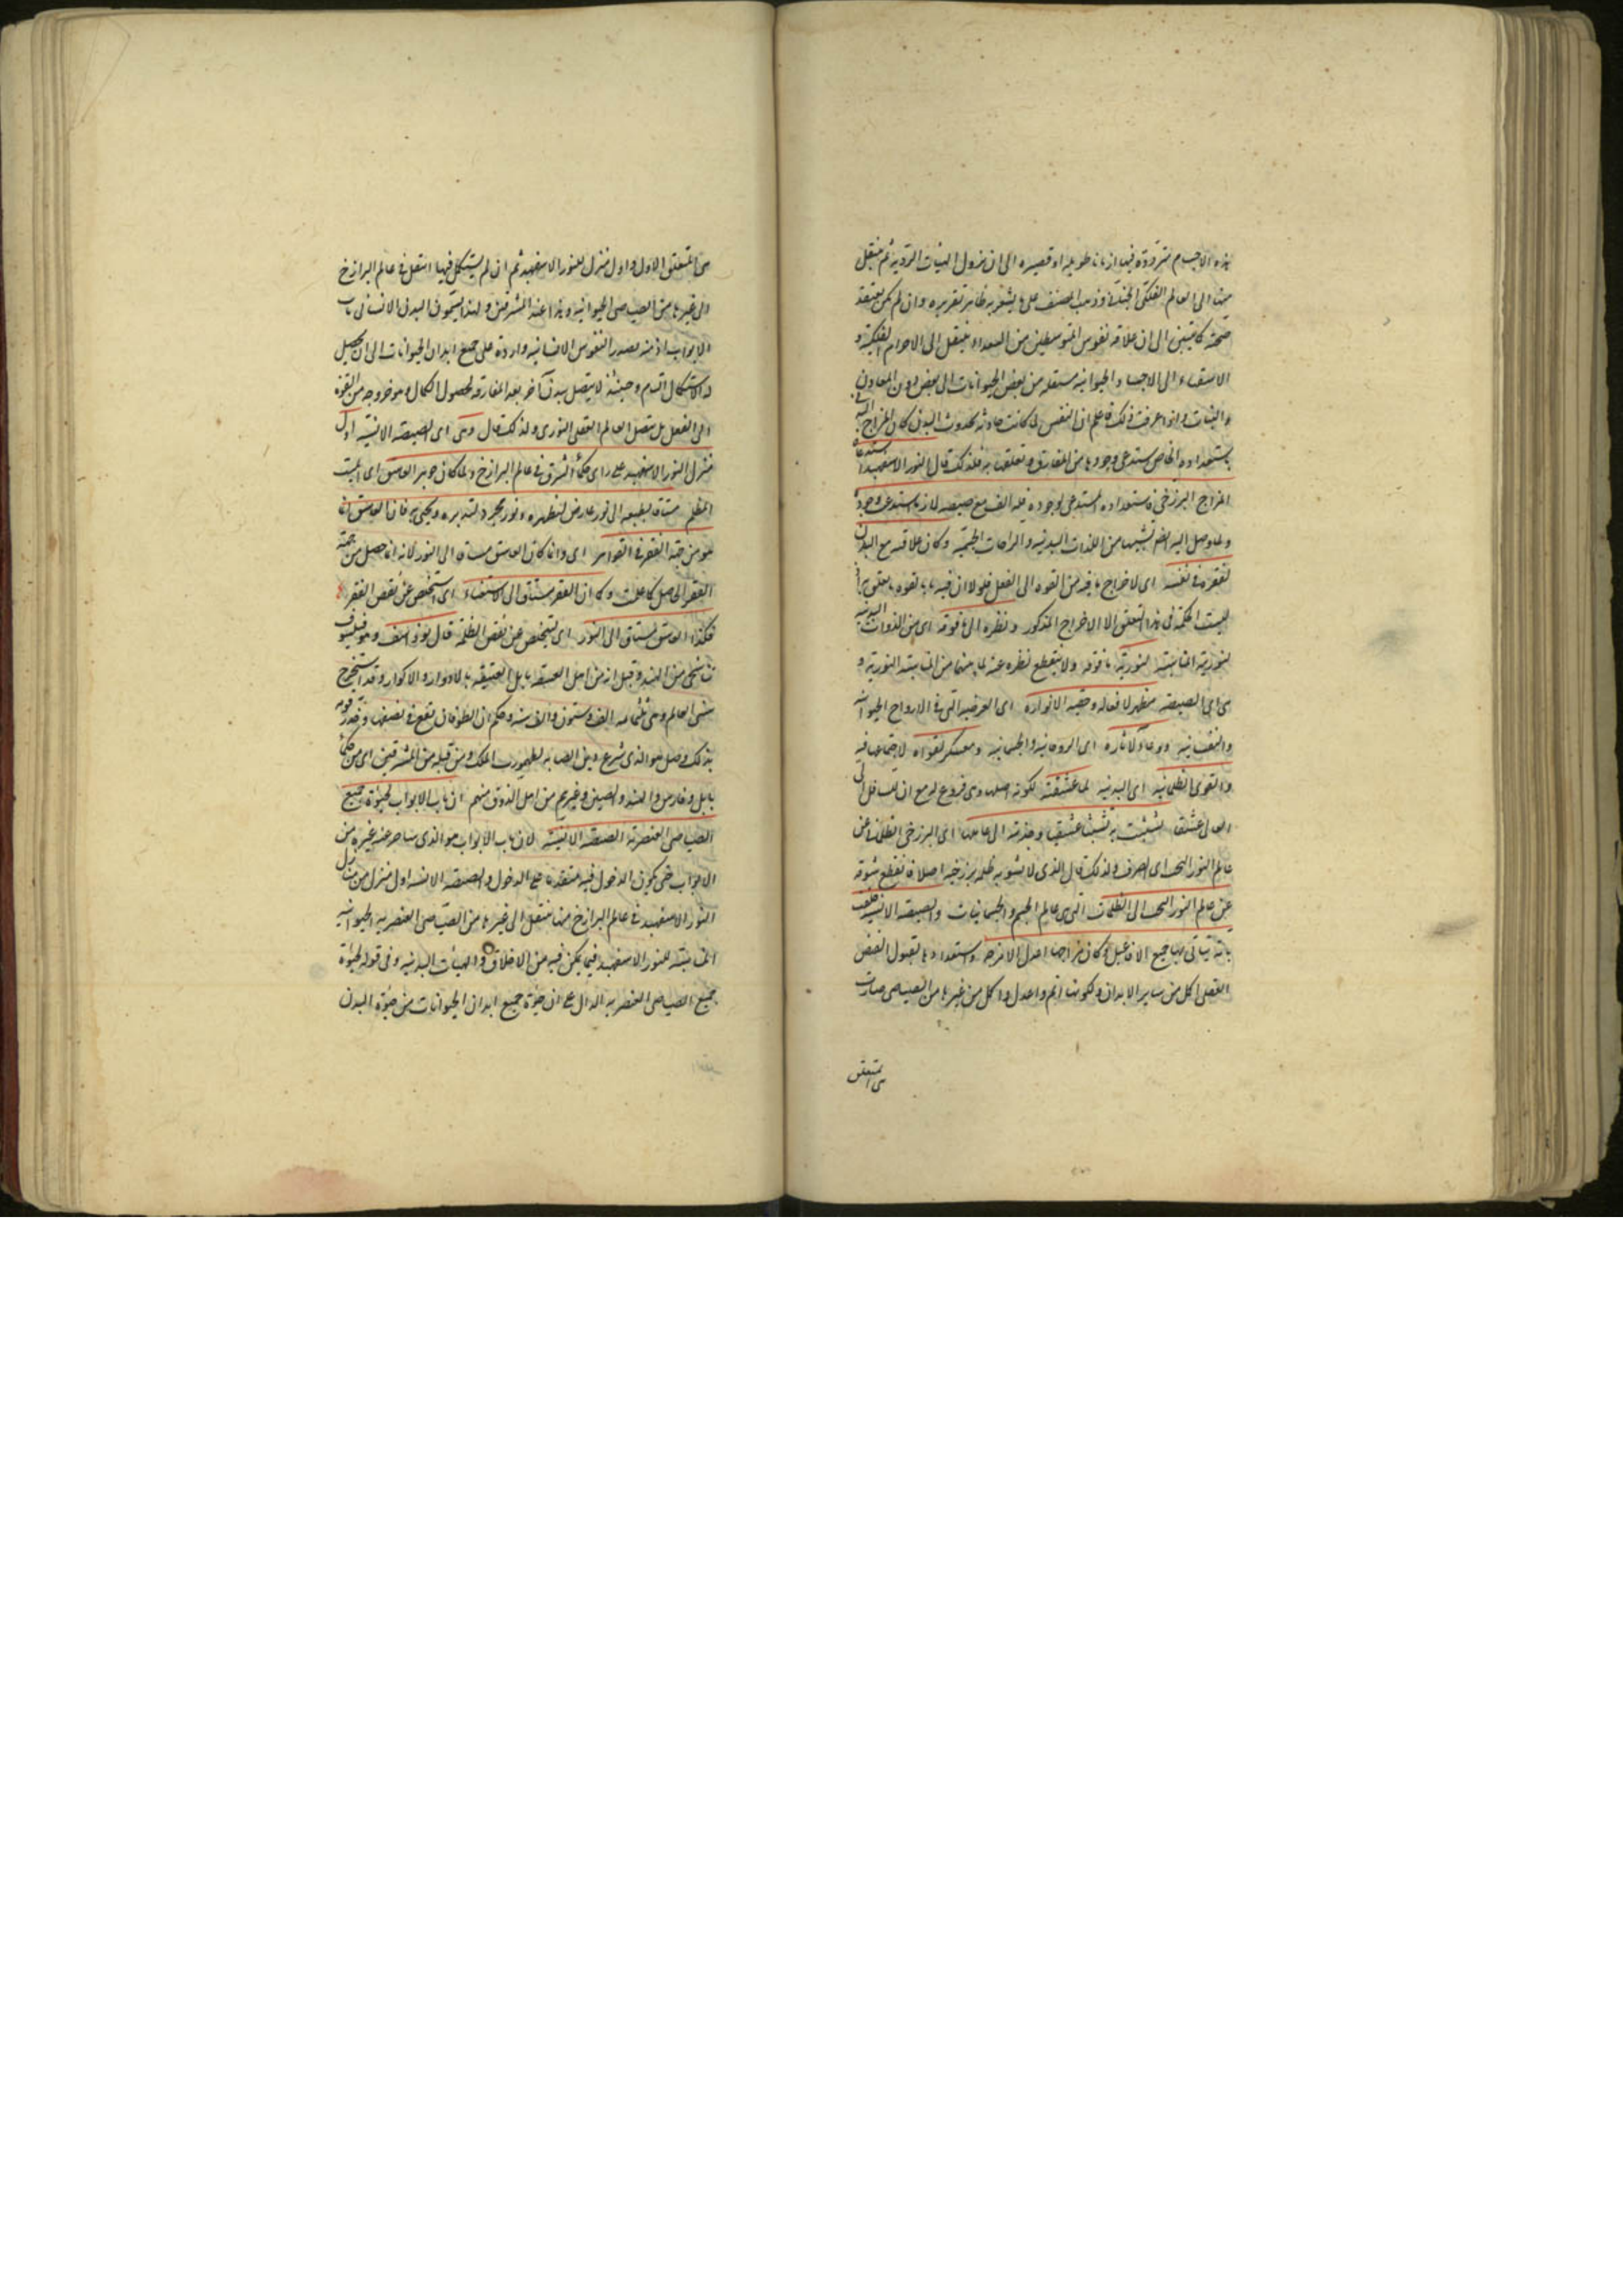 هذه الاجسام مترددة فيها ازمانا طويلة او قصيرة الى ان تزول الهيئات الردية ثم تنتقل
منها الى العالم الفلكى وذهب المصنف على ما يشعر به ظاهر تقريره وان لم يكن يعتقد
صحته كما تبين الى ان علاقة نفوس المتوسطين من السعداء ينتقل الى الاجرام الفلكية و
الاشقياء الى الاجساد الحيوانية منتقلة من بعض الحيوانات الى بعض دون المعادن
والنبات واذا عرفت ذلك فاعلم ان النفس لما كانت حادثة بحدوث البدن كان المزاج البدنى
باستعداده الخاص يستدعى وجودها من المفارق وتعلقها به فلذلك قال النور الاسفهبد استدعاه
المزاج البرزخى باستعداده المستدعى لوجوده فله الف مع صيصيته لانها استدعت وجوده
ولما وصل اليه من اللذات البدنية والراحات الجسمية وكان علاقته مع البدن
لفقره فى نفسه اى لاخراج ما فيه من القوة الى الفعل فلولا ان فيه ما بالقوة ما تعلق به اذ
ليست الحكمة فى هذا التعلق الا الاخراج المذكور ونظره الى ما فوقه اى من الذوات
لنوريته المناسبة لنورية ما فوقه ولا ينقطع نظره عنه لما بينهما من المناسبة النورية و
هى اى الصيصية مظهر لافعاله وحقيبة لانواره اى العرضية التى فى الارواح الحيوانية
والنفسانية ووعاء لآثاره اى الروحانية والجسمانية ومعسكر لقواه لاجتماعها فيه
والقوى الظلمانية اى البدنية لما عشقته لكونه اصلها وهى فروع له مع ان للسافل الى
العالى عشقا تشبثت به تشبثا عشقيا وجذبته الى عالمها اى البرزخى الظلمانى عن
عالم النور البحت اى الصرف ولذلك قال الذى لا يشوبه ظلمة برزخية اصلا فانقطع شوقه
عن عالم النور البحت الى الظلمات التى هى عالم الجسم والجسمانيات والصيصية الانسية خلقت
تامة يتأتى بها جميع الافاعيل وكان مزاجها اعدل الامزجة واستعدادها لقبول الفيض
العقلى اكمل من ساير الابدان ولكونها اتم واعدل واكمل من غيرها من الصياصى صارت
هى المتعلق
هى المتعلق الاول واول منزل للنور الاسفهبد ثم ان لم يستكمل فيها انتقل فى عالم البرازخ
الى غيرها من الصياصى الحيوانية وهذا عند المشرقيين ولهذا يسمون البدن الانسانى باب
الابواب اذ منه تصدر النفوس الانسانية واردة على جميع ابدان الحيوانات الى ان يحصل
له الاستكمال التام وحينئذ لا يتصل ببدن آخر بعد المفارقة لحصول الكمال وهو خروجه من القوة
الى الفعل بل يتصل بالعالم العقلى النورى ولذلك قال وهى اى الصيصية الانسية اول
منزل للنور الاسفهبد على راى حكماء الشرق فى عالم البرازخ ولما كان جوهر الغاسق اى الميت
المظلم مشتاقا بطبعه الى نور عارض لتظهره ونور مجرد لتدبره ويحيى به فان الغاسق انما
هو من جهة الفقر فى القواهر اى وانما كان الغاسق مشتاقا الى النور لانه انما حصل من جهة
الفقر الحاصل كما علمت وكما ان الفقر يشتاق الى الاستغناء اى ليتخلص عن نقص الفقر
فكذا الغاسق يشتاق الى النور اى ليتخلص عن نقص الظلمة قال يوذاسف وهو فيلسوف
تناسخى من الهند وقيل انه من اهل بابل العتيقة بالادوار والاكوار وقد استخرج
سنى العالم وهى ثلثمائة الف وستون الف سنة وحكم ان الطوفان يقع فى نصفها وحذر قومه
بذلك وقيل هو الذى شرع دين الصابئة لطهمورث الملك ومن قبله من المشرقيين اى من حكماء
بابل وفارس والهند والصين وغيرهم من اهل الذوق منهم ان باب الابواب لحيوة جميع
الصياصى العنصرية الصيصية الانسية لان باب الابواب هو الذى يتاخر عنه غيره من
الابواب حتى يكون الدخول فيه متقدما على الدخول والصيصية الانسية اول منزل من منازل
النور الاسفهبد فى عالم البرازخ منها ينتقل الى غيرها من الصياصى العنصرية الحيوانية
المناسبة للنور الاسفهبد فيما يمكن فيه من الاخلاق والهيئات البدنية وفى قوله لحيوة
جميع الصياصى العنصرية الدال على ان حيوة جميع ابدان الحيوانات من حيوة البدن